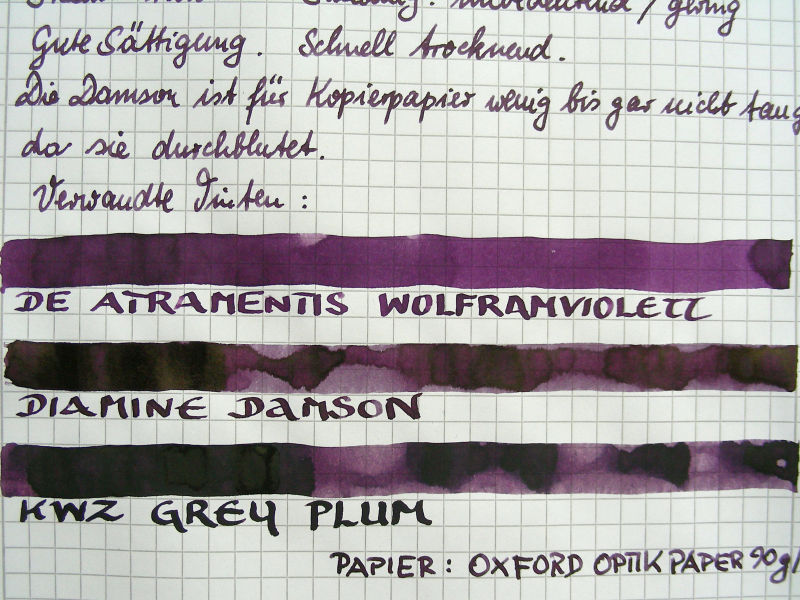 unbedeutend / gering
Gute Sättigung. Schnell trocknend.
Die Damson ist für Kopierpapier wenig bis gar nicht taug
da sie durchblutet.
Verwandte Tinten :
DE ATRAMENTIS WOLFRAMVIOLETT
DIAMINE DAMSON
KWZ GREY PLUM
PAPIER : OXFORD OPTIK PAPER 90g/